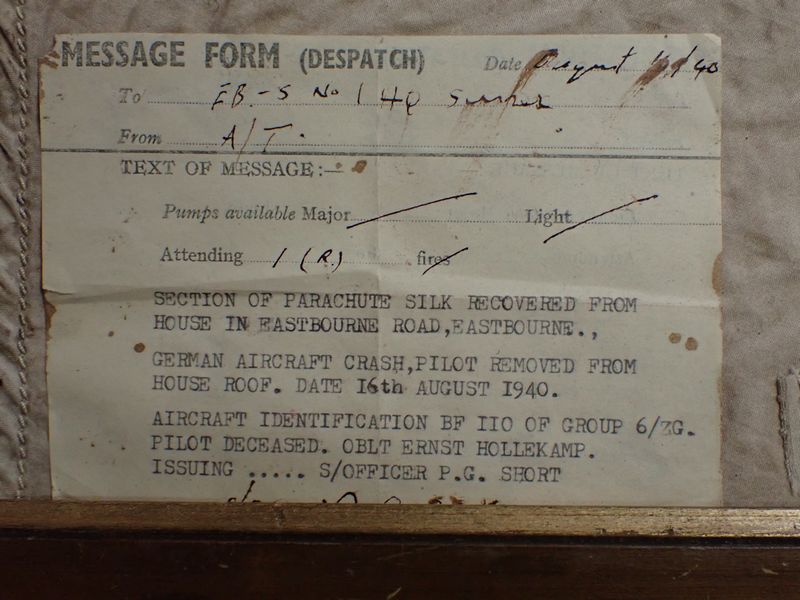 MESSAGE FORM (DESPATCH) Date August /40
To EB-S No 1 HQ
From A/T.
TEXT OF MESSAGE:—
Pumps available Major Light
Attending 1 (R.) fires
SECTION OF PARACHUTE SILK RECOVERED FROM
HOUSE IN EASTBOURNE ROAD,EASTBOURNE.,
GERMAN AIRCRAFT CRASH,PILOT REMOVED FROM
HOUSE ROOF. DATE 16th AUGUST 1940.
AIRCRAFT IDENTIFICATION BF IIO OF GROUP 6/ZG.
PILOT DECEASED. OBLT ERNST HOLLEKAMP.
ISSUING ..... S/OFFICER P.G. SHORT